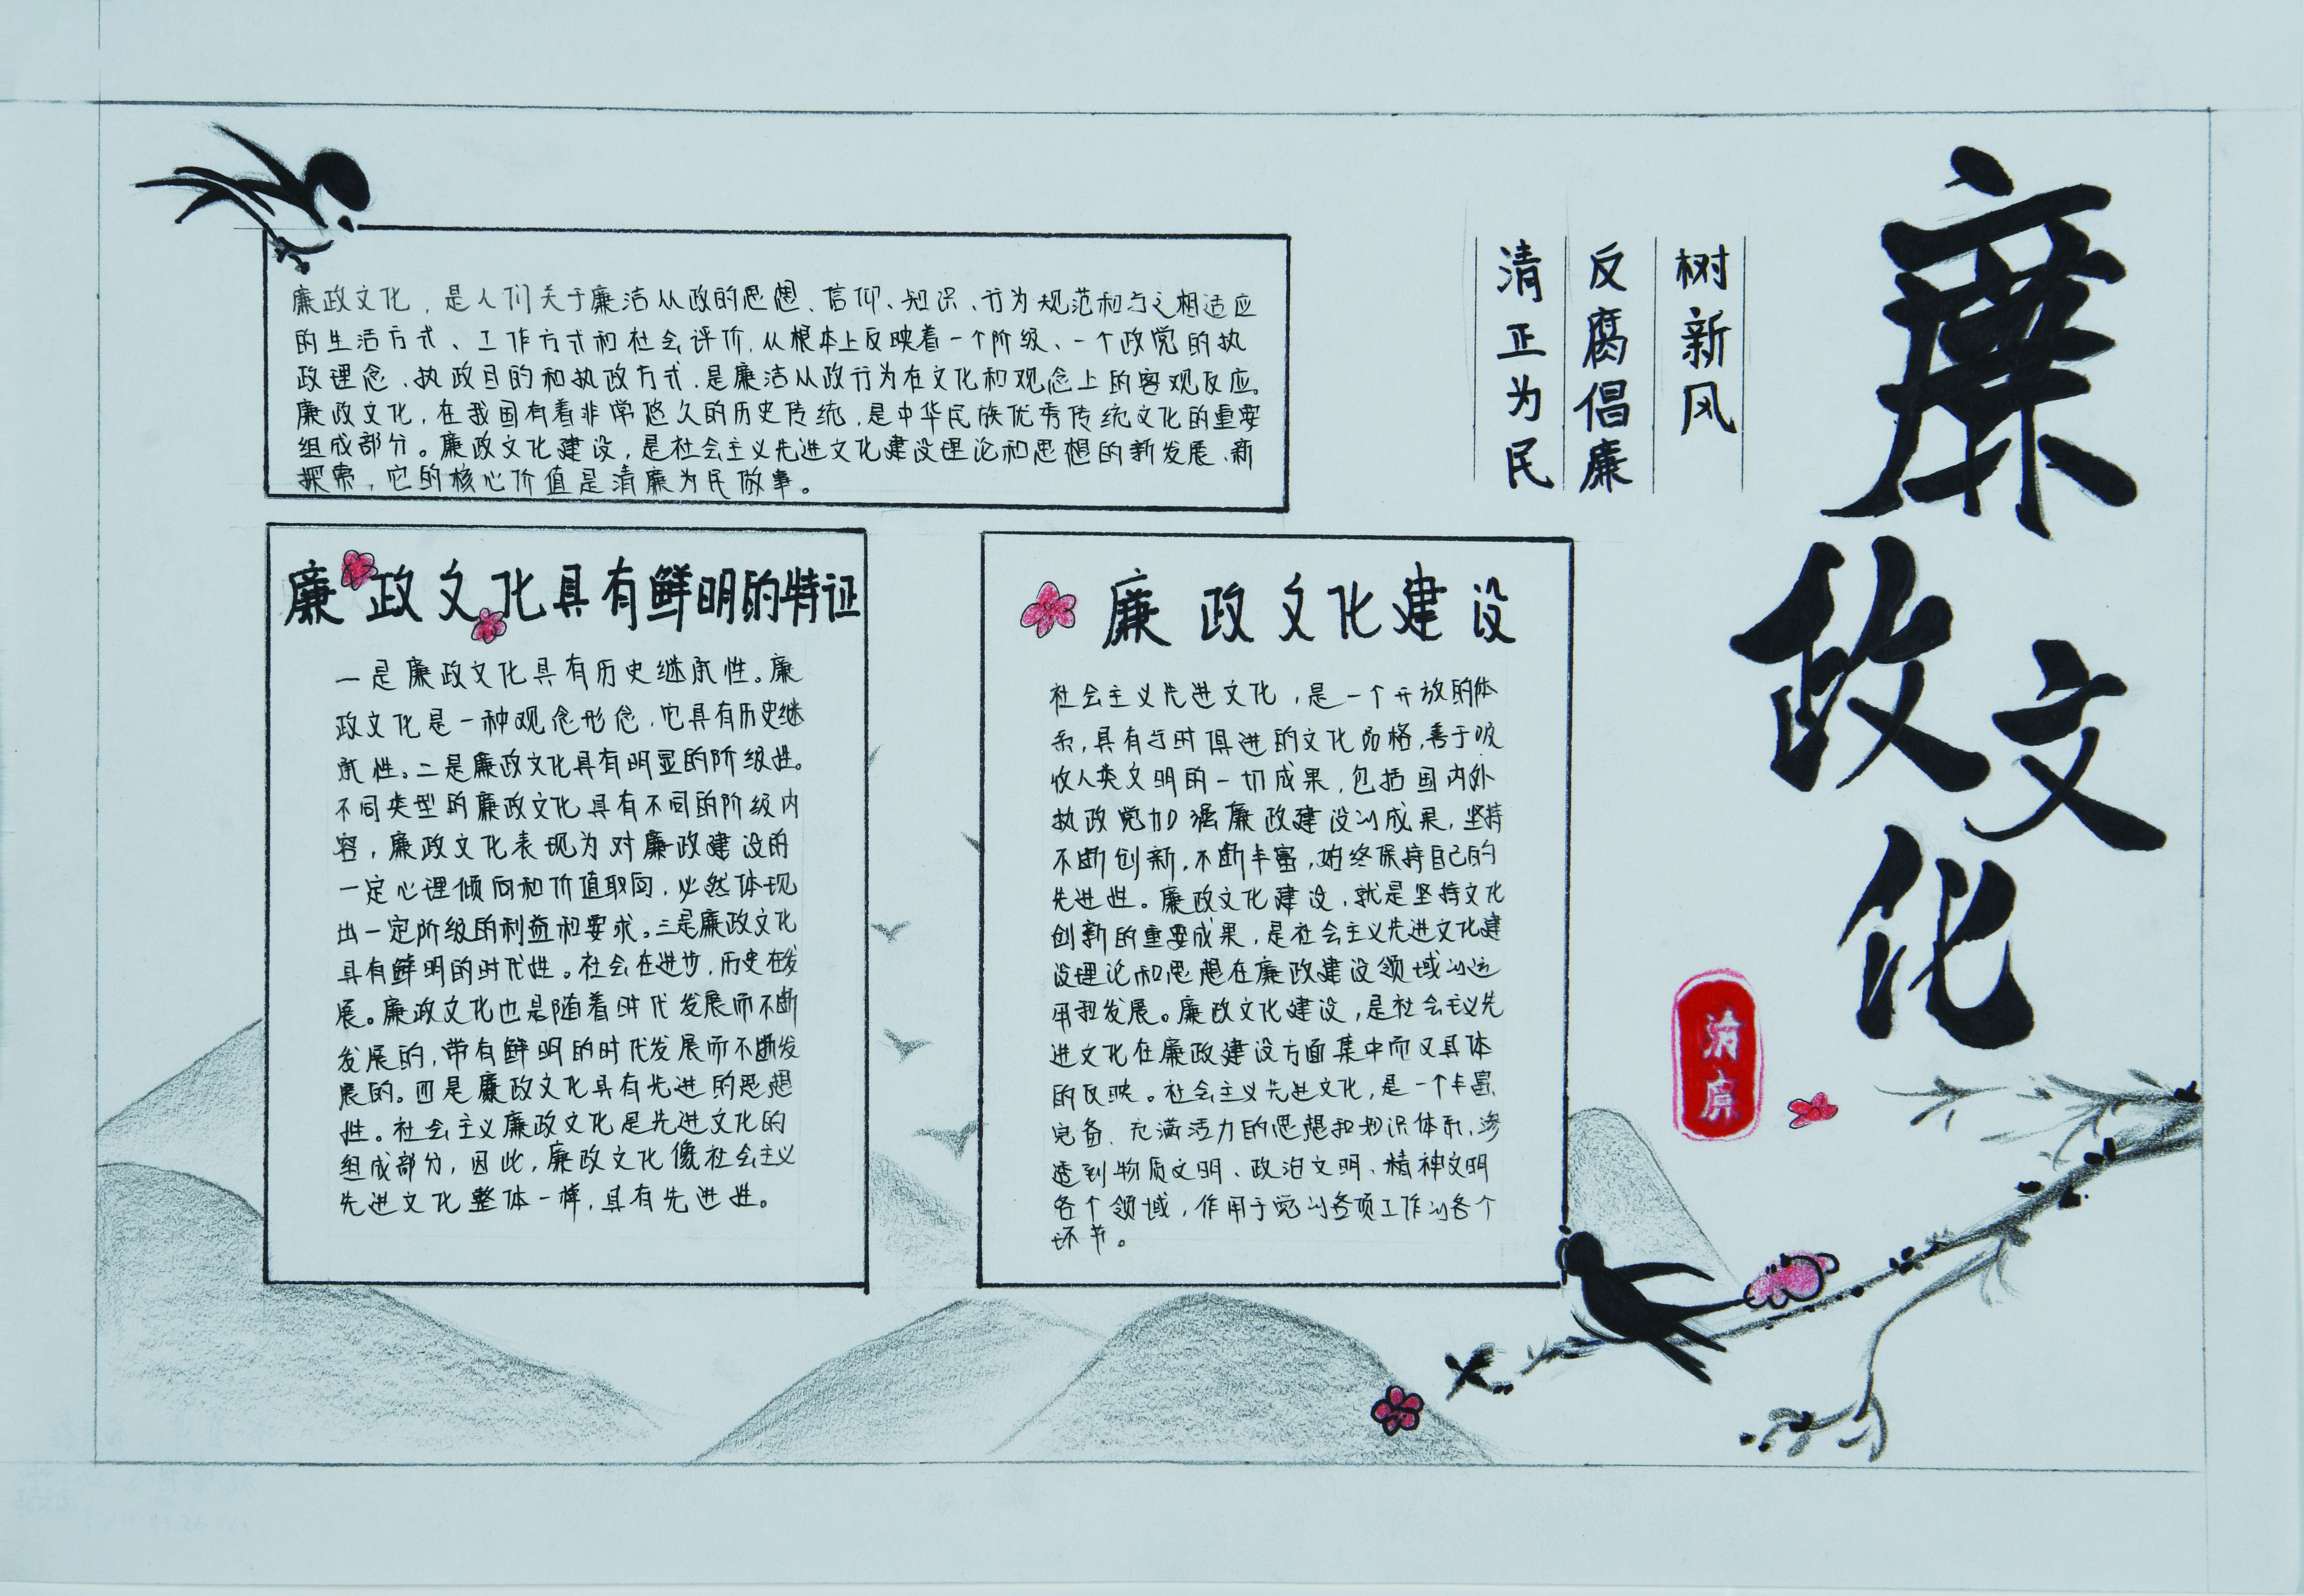 廉政文化
树新风
反腐倡廉
清正为民
清廉
廉政文化，是人们关于廉洁从政的思想、信仰、知识、行为规范和与之相适应
的生活方式、工作方式和社会评价，从根本上反映着一个阶级、一个政党的执
政理念、执政目的和执政方式，是廉洁从政行为在文化和观念上的客观反应。
廉政文化，在我国有着非常悠久的历史传统，是中华民族优秀传统文化的重要
组成部分。廉政文化建设，是社会主义先进文化建设理论和思想的新发展、新
探索，它的核心价值是清廉为民做事。
廉政文化具有鲜明的特征
一是廉政文化具有历史继承性。廉
政文化是一种观念形态，它具有历史继
承性。二是廉政文化具有明显的阶级性。
不同类型的廉政文化具有不同的阶级内
容，廉政文化表现为对廉政建设的
一定心理倾向和价值取向，必然体现
出一定阶级的利益和要求。三是廉政文化
具有鲜明的时代性。社会在进步，历史在发
展。廉政文化也是随着时代发展而不断
发展的，带有鲜明的时代发展而不断发
展的。四是廉政文化具有先进的思想
性。社会主义廉政文化是先进文化的
组成部分，因此，廉政文化像社会主义
先进文化整体一样，具有先进性。
廉政文化建设
社会主义先进文化，是一个开放的体
系，具有与时俱进的文化品格，善于吸
收人类文明的一切成果，包括国内外
执政党加强廉政建设的成果，坚持
不断创新，不断丰富，始终保持自己的
先进性。廉政文化建设，就是坚持文化
创新的重要成果，是社会主义先进文化建
设理论和思想在廉政建设领域的运
用和发展。廉政文化建设，是社会主义先
进文化在廉政建设方面集中而又具体
的反映。社会主义先进文化，是一个丰富、
完备、充满活力的思想和知识体系，渗
透到物质文明、政治文明、精神文明
各个领域，作用于党的各项工作的各个
环节。